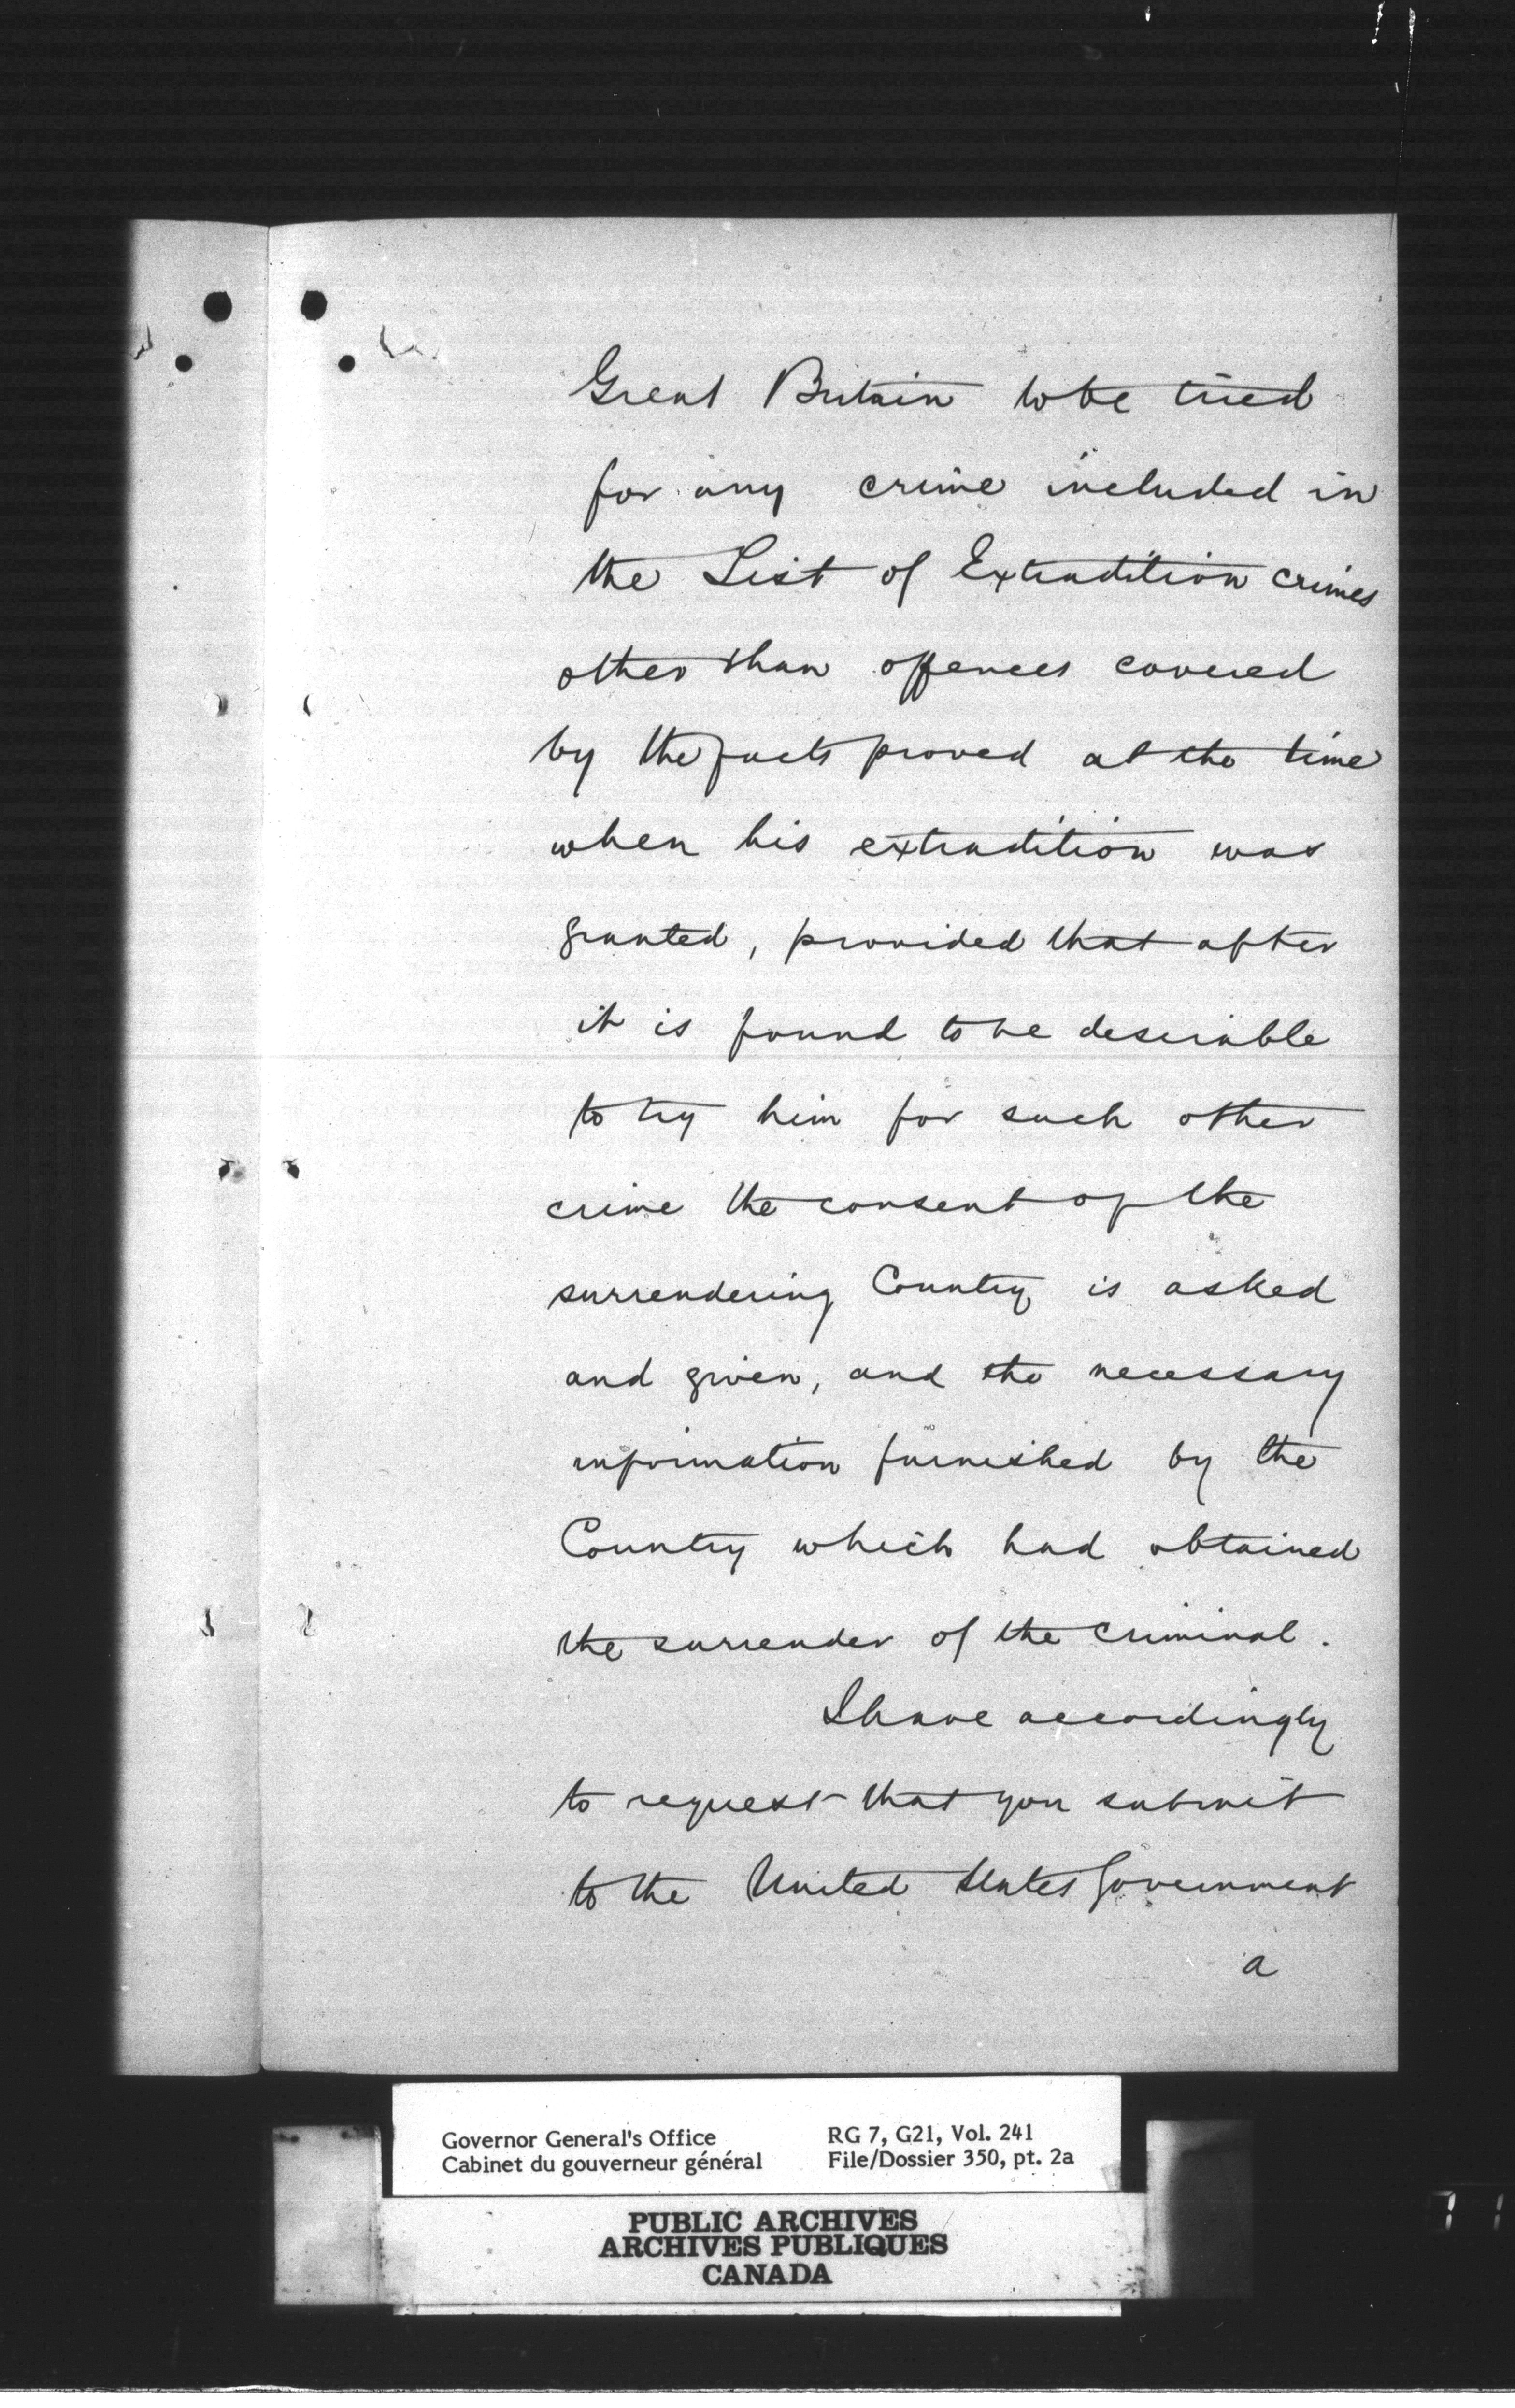 Great Britain to be tried
for any crime included in
the List of Extradition crimes
other than offences covered
by the facts proved at the time
when his extradition was
granted, provided that after
it is found to be desirable
to try him for such other
crime the consent of the
surrendering Country is asked
and given, and the necessary
information furnished by the
Country which had obtained
the surrender of the criminal.
I have accordingly
to request that you submit
to the United States Government
a
Governor General's Office
Cabinet du gouverneur général
RG 7, G21, Vol. 241
File/Dossier 350, pt. 2a
PUBLIC ARCHIVES
ARCHIVES PUBLIQUES
CANADA